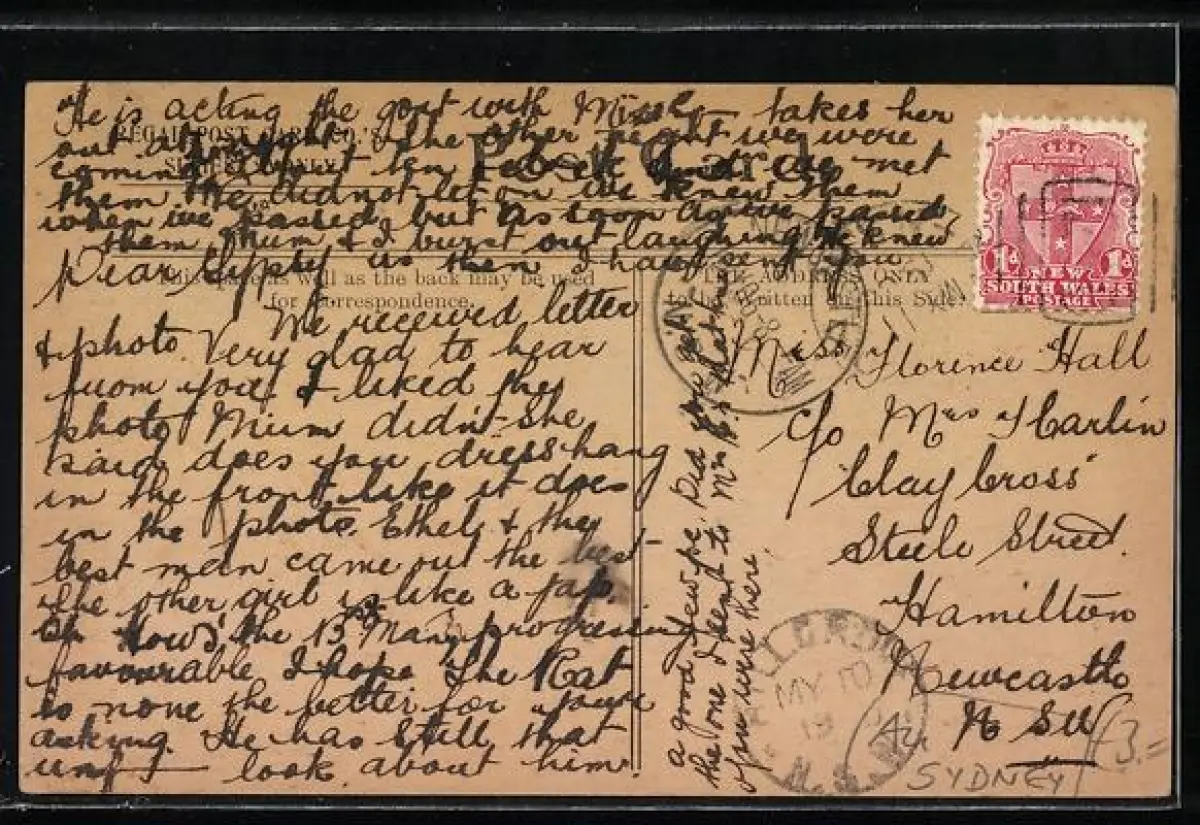 He is acting the goat with Miss takes her
out at night. The other night we were
coming about ten and we met
them We did not let on we knew them
when we passed but as soon as we passed
them Mum & I burst out laughing
REGAL POST CARD CO.'S
SYDNEY ONLY
Post Card
This space as well as the back may be used
for Correspondence.
THE ADDRESS ONLY
to be Written on this Side.
Dear Gypsy
I have sent you
We received letter
& photo. Very glad to hear
from you. I liked the
photo Mum didn't she
said does you dress hang
in the front like it does
in the photo. Ethel & the
best man came out the best
The other girl is like a Jap.
How's the 13th May progressing
favourable I hope The Rat
is none the better for your
asking. He has still that
look about him.
a good few pc. Did you get
the one I sent to Mrs
if you were there.
1d NEW 1d
SOUTH WALES
POSTAGE
Miss Florence Hall
c/o Mrs Harlin
'Clay Cross'
Steele Street.
Hamilton
Newcastle
N SW
MY 10
N.S.W
SYDNEY